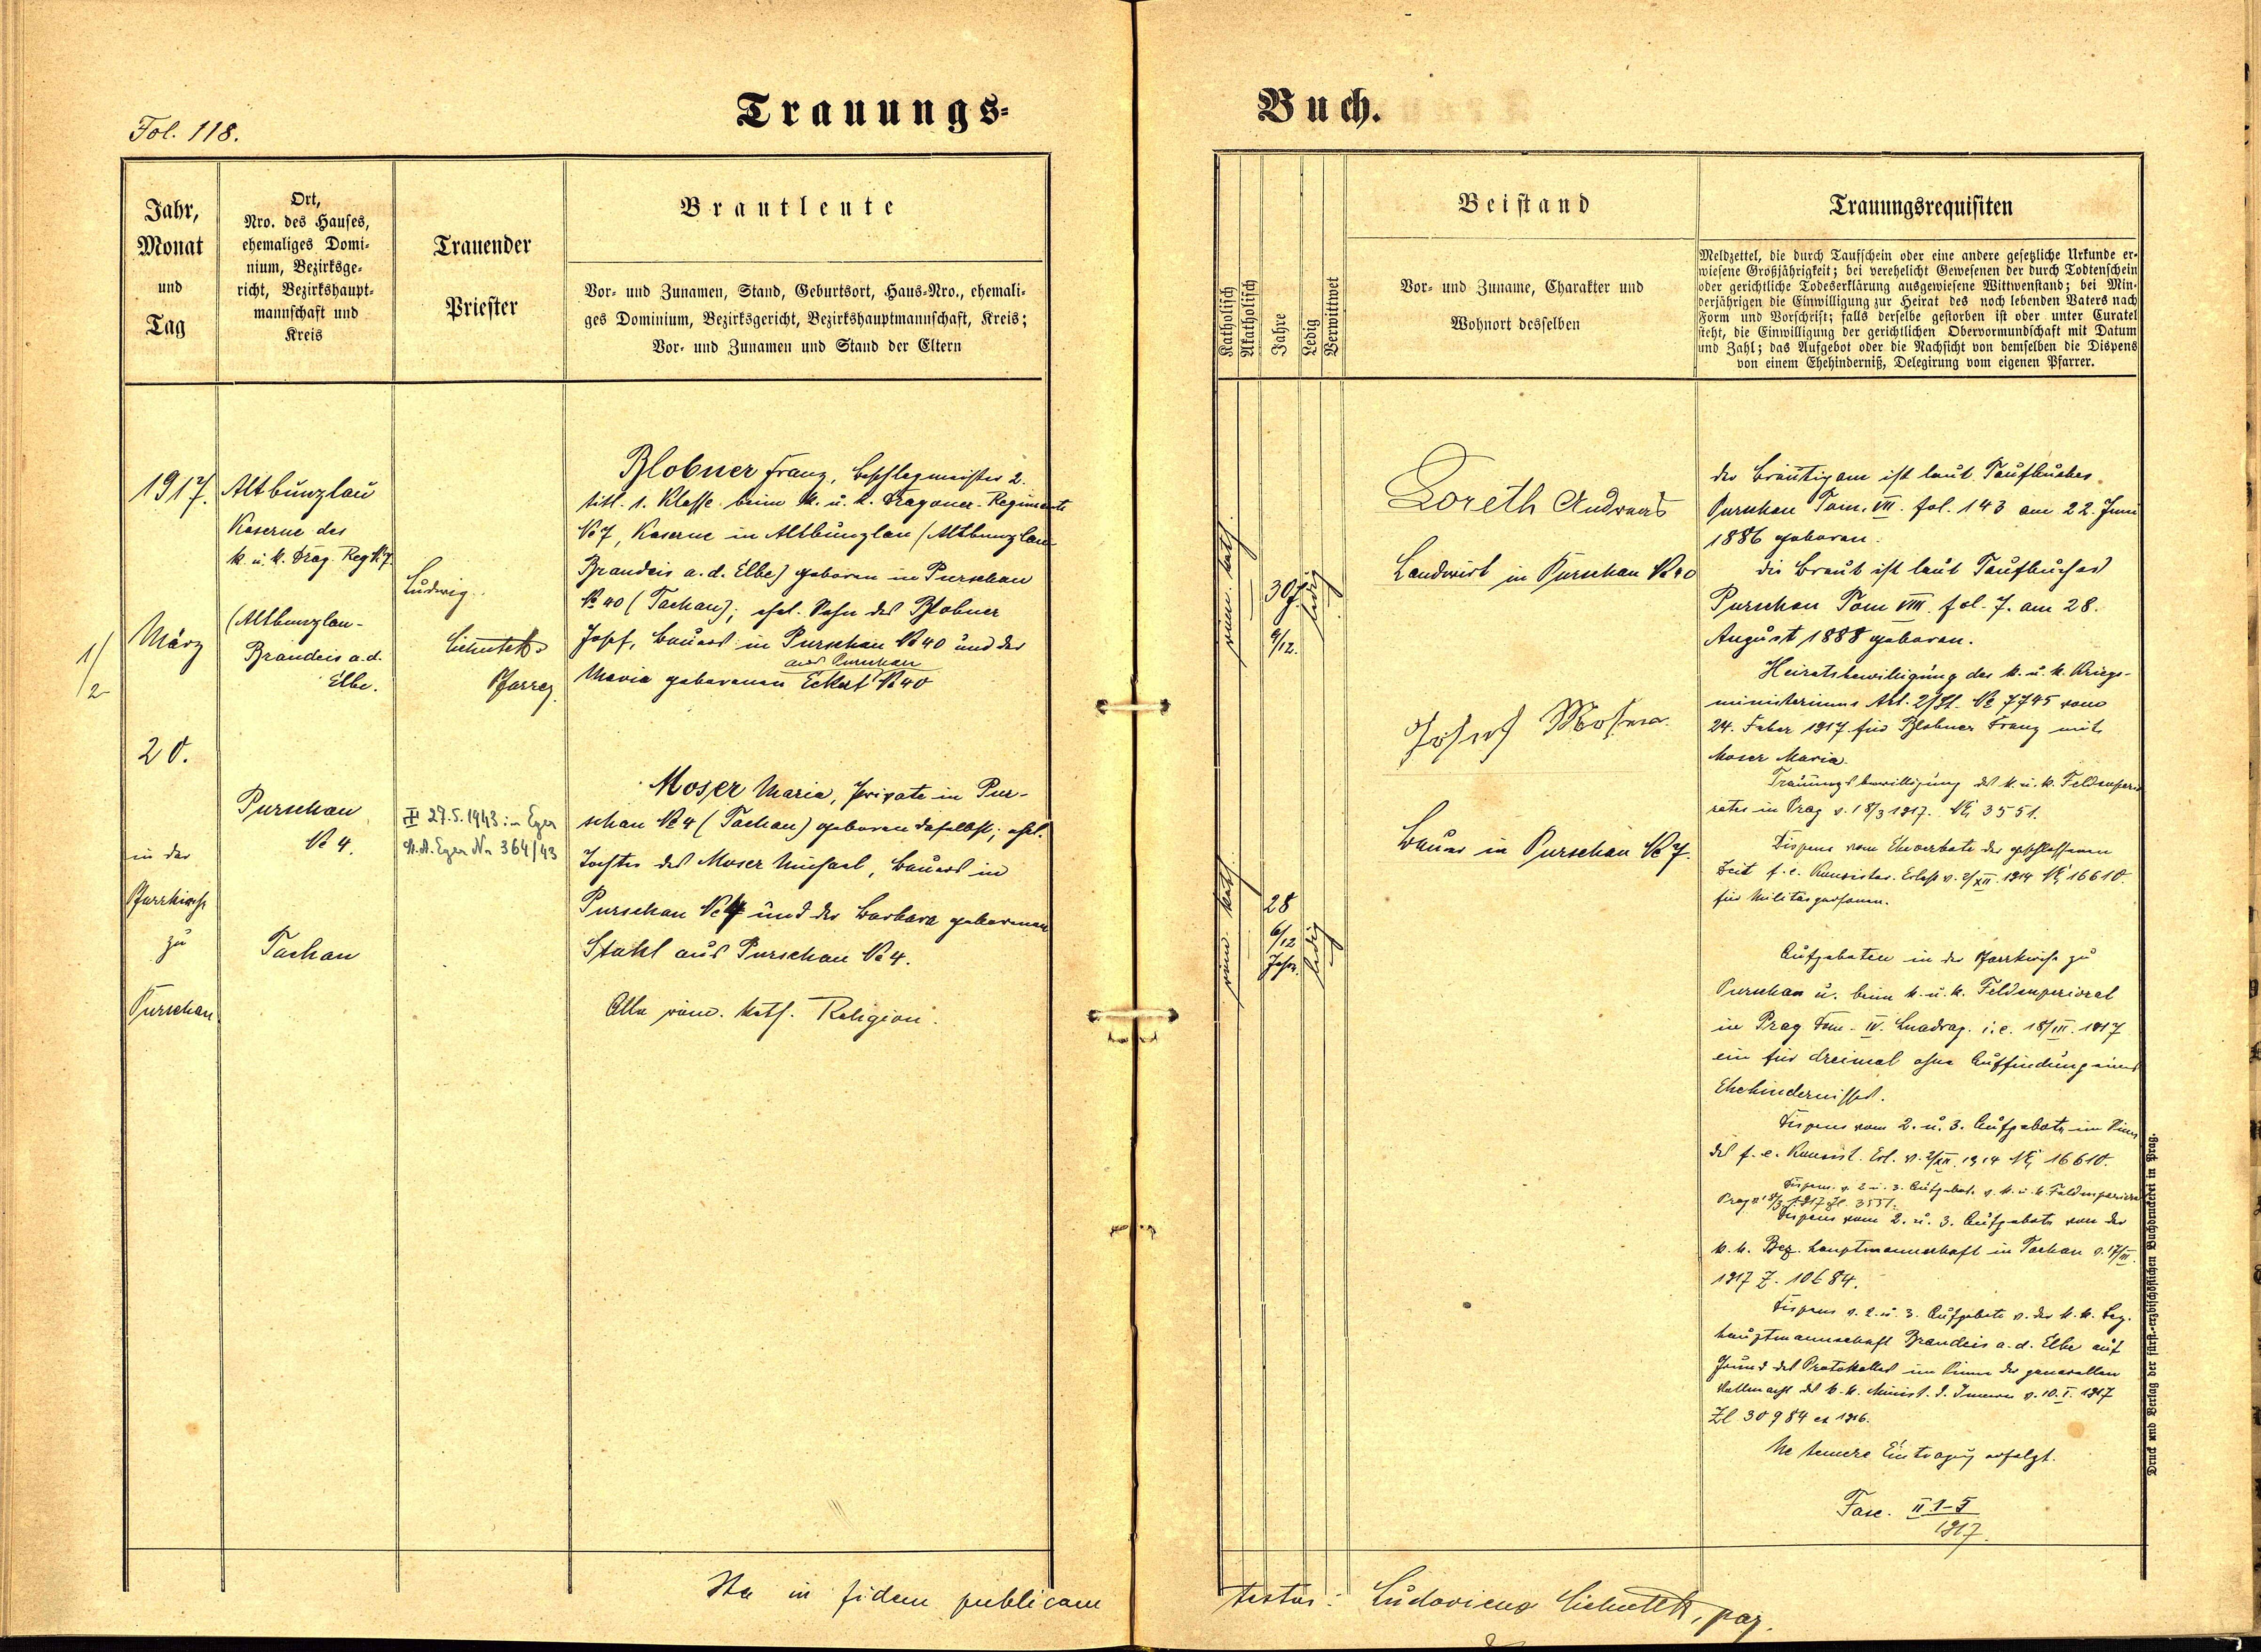 Fol. 118.
Trauungs-
Buch.
Jahr,
Monat
und
Tag
Ort,
Nro. des Hauses,
ehemaliges Domi-
nium, Bezirksge-
richt, Bezirkshaupt-
mannschaft und
Kreis
Trauender
Priester
Brautleute
Vor- und Zunamen, Stand, Geburtsort, Haus-Nro., ehemali-
ges Dominium, Bezirksgericht, Bezirkshauptmannschaft, Kreis;
Vor- und Zunamen und Stand der Eltern
1917.
März
1/2
20.
in der
Pfarrkirche
zu
Purschau
Altbunzlau
Kaserne des
k. u. k. Drag. Reg. № 7
(Altbunzlau-
Brandeis a. d.
Elbe.
Purschau
№ 4.
Tachau
Ludwig
Pfarrer
27.5.1943 in Eger
St. A. Eger Nr 364/43
Blobner Franz, Beschlagmeister 2.
titl. 1. Klasse beim k. u. k. Dragoner-Regimente
№ 7, Kaserne in Altbunzlau (Altbunzlau-
Brandeis a. d. Elbe) geboren in Purschau
№ 40 (Tachau); ehel. Sohn des Blobner
Josef, Bauers in Purschau № 40 und der
aus Purschau
Maria geborenen Eckert № 40
Moser Maria, Private in Pur-
schau № 4 (Tachau) geboren daselbst; ehel.
Tochter des Moser Michael, Bauers in
Purschau № 4 und der Barbara geborenen
Stahl aus Purschau № 4.
Alle röm. kath. Religion.
Ita in fidem publicam
Katholisch
Akatholisch
Jahre
Ledig
Verwittwet
Beistand
Vor- und Zuname, Charakter und
Wohnort desselben
Trauungsrequisiten
Meldzettel, die durch Taufschein oder eine andere gesetzliche Urkunde er-
wiesene Großjährigkeit; bei verehelicht Gewesenen der durch Todtenschein
oder gerichtliche Todeserklärung ausgewiesene Wittwenstand; bei Min-
derjährigen die Einwilligung zur Heirat des noch lebenden Vaters nach
Form und Vorschrift; falls derselbe gestorben ist oder unter Curatel
steht, die Einwilligung der gerichtlichen Obervormundschaft mit Datum
und Zahl; das Aufgebot oder die Nachsicht von demselben die Dispens
von einem Ehehinderniß, Delegirung vom eigenen Pfarrer.
röm. kath.
30 J.
9/12.
ledig
röm. kath.
28
6/12
Jahre
ledig
Loreth Andreas
Landwirt in Purschau № 40
Josef
Bauer in Purschau № 7.
Der Bräutigam ist laut Taufbuches
Purschau Tom. VII. fol. 143 am 22. Juni
1886 geboren.
Die Braut ist laut Taufbuches
Purschau Tom VIII. fol. 7. am 28.
August 1888 geboren.
Heiratsbewilligung des k. u. k. Kriegs-
ministeriums Abt. 2/St. № 7745 vom
24. Feber 1917 für Blobner Franz mit
Moser Maria.
Trauungsbewilligung des k. u. k. Feldsuperio
rates in Prag v. 18/3 1917. № 3551.
Dispens vom Eheverbote der geschlossenen
Zeit f. e. Konsistor. Erlass v. 2/XII. 1914 № 16610.
für Militärpersonen.
Aufgeboten in der Pfarrkirche zu
Purschau u. beim k. u. k. Feldsuperiorat
in Prag Dom. IV. Quadrag. i. e. 18/III. 1917
ein für dreimal ohne Auffindung eines
Ehehindernisses.
Dispens vom 2. u. 3. Aufgebote im Sinne
des f. e. Konsist. Erl. v. 2/XII. 1914 № 16610.
Dispens v. 2. u. 3. Aufgebote v. k. u. k. Feldsuperiorat
Prag v. 18/3 1917 Zl. 3551.
Dispens vom 2. u. 3. Aufgebote von der
k. k. Bez. hauptmannschaft in Tachau v. 17/III.
1917 Z. 10684.
Dispens v. 2. u. 3. Aufgebote v. der k. k. Bez.
hauptmannschaft Brandeis a. d. Elbe auf
Grund des Protokolles im Sinne der generellen
Vollmacht des k. k. Minist. d. Innern v. 10. I. 1917
Zl 30984 ex 1916.
Ne temere Eintragung erfolgt.
Fasc. II 1-5
1917.
testor: Ludovicus
Druck und Verlag der fürst.-erzbischöflichen Buchdruckerei in Prag.